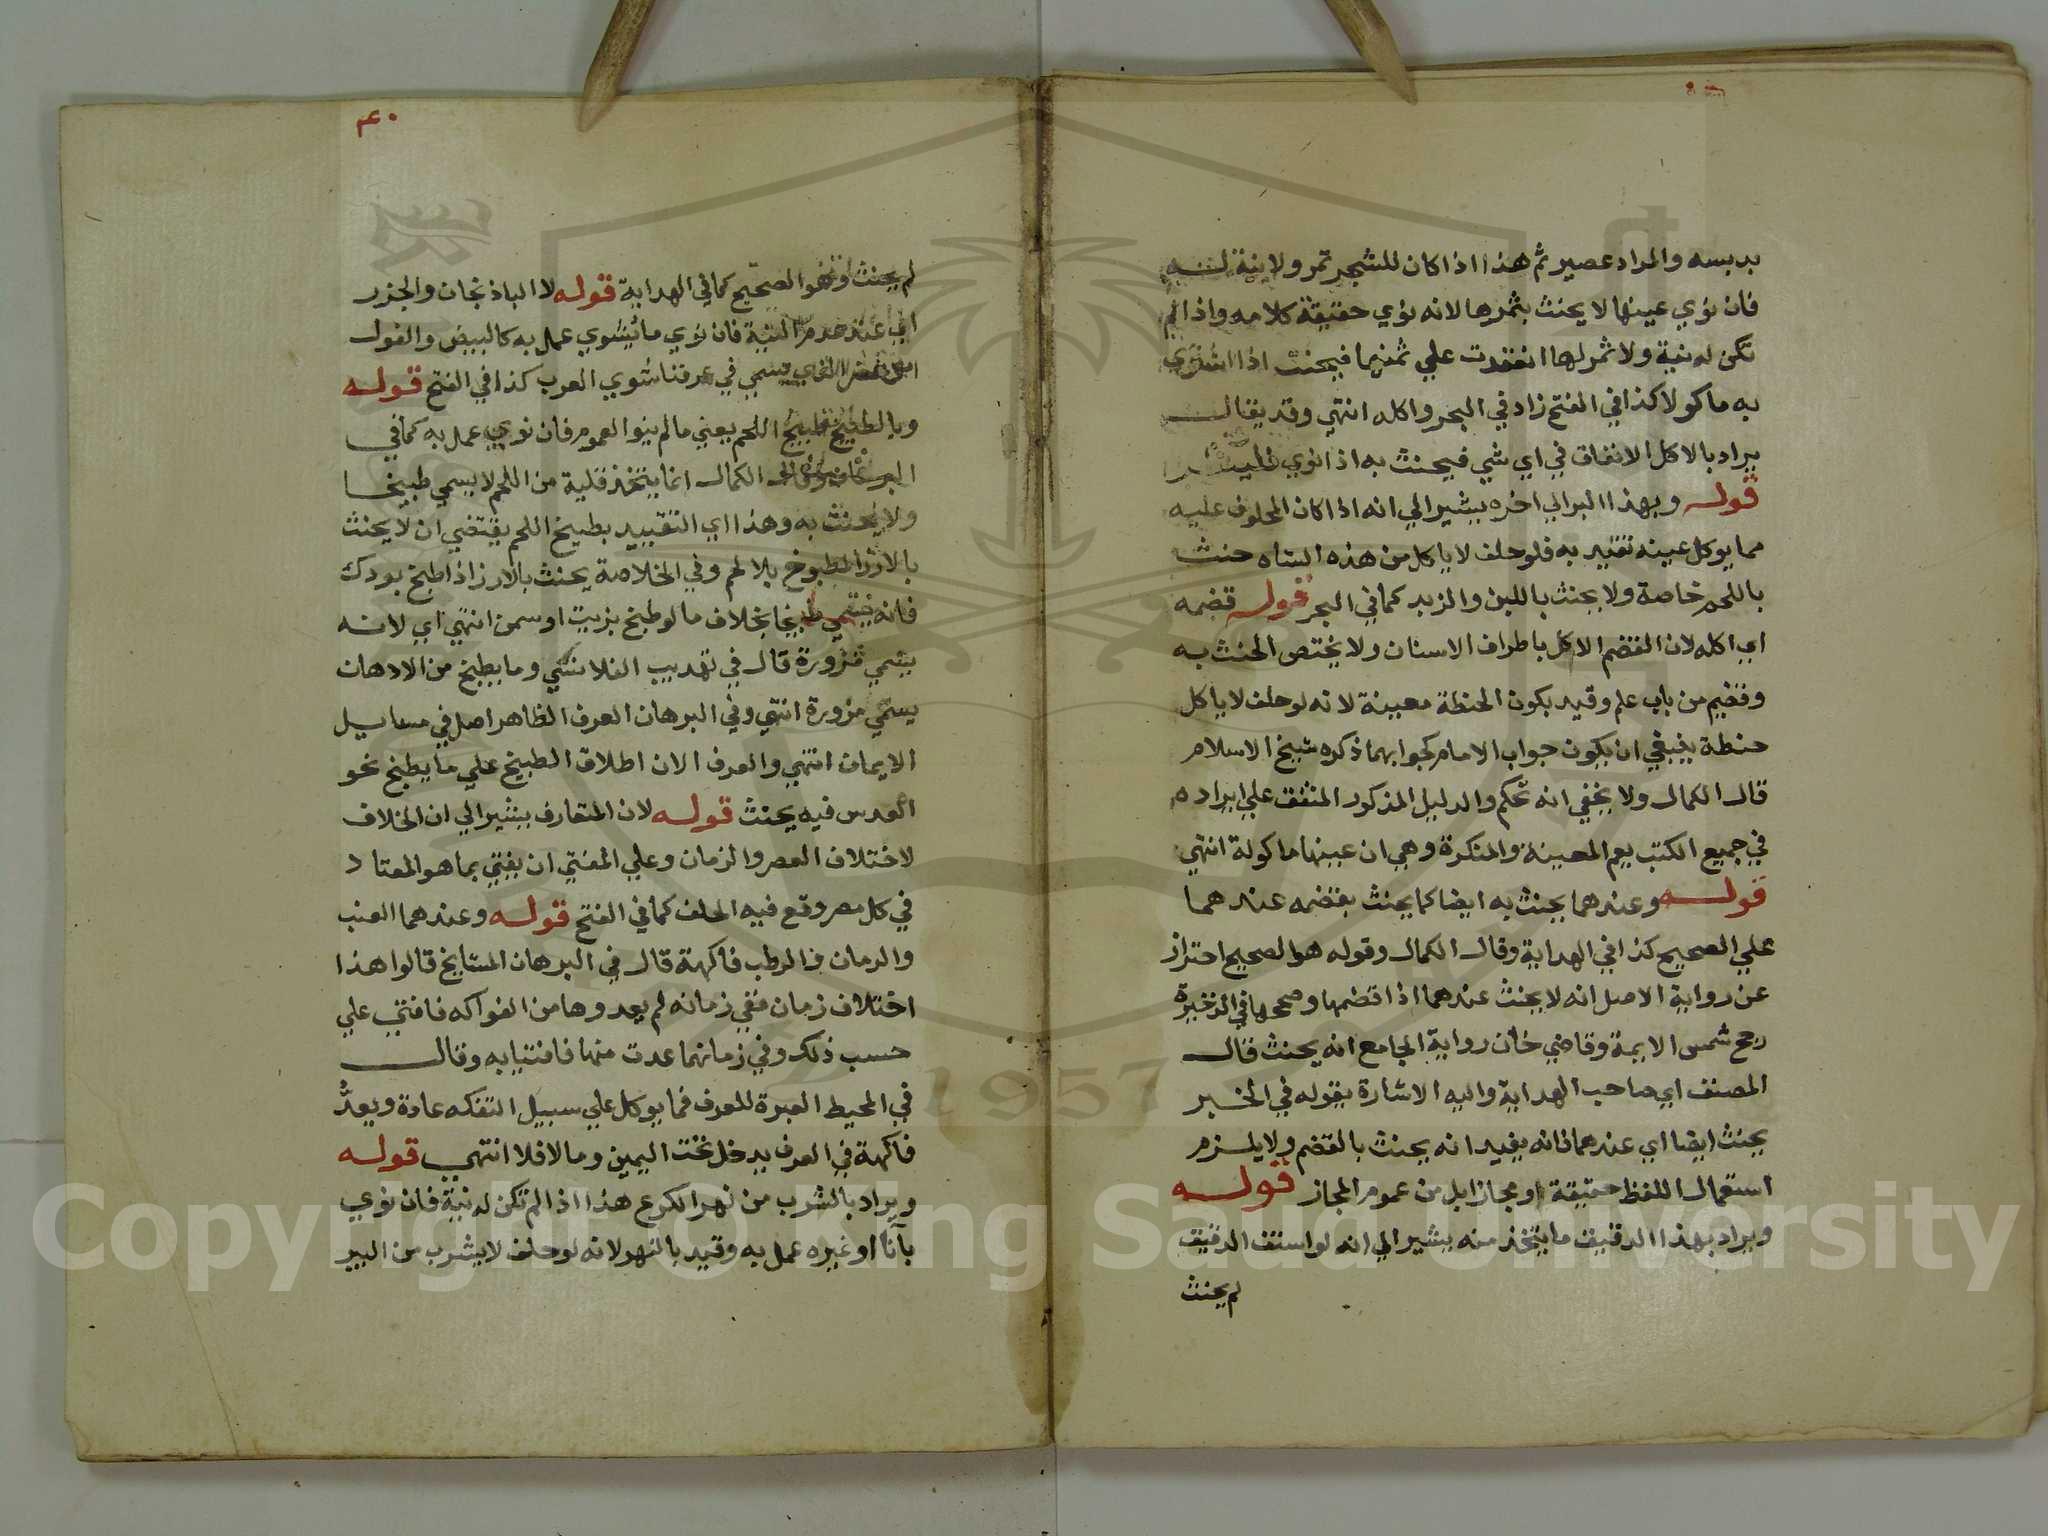 بدبسه والمراد عصير ثم هذا اذا كان للشجر تمر ولا بنية له
فان نوي عينها لا يحنث بثمرها لانه نوي حقيقة كلامه واذا لم
تكن له نية ولا ثمر لها انعقدت علي ثمنها فيحنث اذا اشتري
به ماكولا كذا في الفتح زاد في البحر واكله انتهي وقد يقال
يراد بالاكل الانفاق في اي شي فيحنث به اذا نوي
قوله وبهذا البر الي اخره يشير الي انه اذا كان المحلوف عليه
مما يوكل عينه تقيد به فلو حلف لا ياكل من هذه الشاه حنث
باللحم خاصة ولا يحنث باللبن والزبد كما في البحر قوله قضمه
اي اكله لان القضم الاكل باطراف الاسنان ولا يختص الحنث به
وقضيم من باب علم وقيد بكون الحنطة معينة لانه لو حلف لا ياكل
حنطة ينبغي ان يكون جواب الامام كجوابهما ذكره شيخ الاسلام
قال الكمال ولا يخفي انه تحكم والدليل المذكور المتفق علي ايراده
في جميع الكتب يعم المعينة والمنكرة وهي ان عينها ماكولة انتهي
قوله وعندهما يحنث به ايضا كما يحنث بقضمه عندهما
علي الصحيح كذا في الهداية وقال الكمال وقوله هو الصحيح احتراز
عن رواية الاصل انه لا يحنث عندهما اذا قضمها وصححها في الذخيرة
رجح شمس الايمة وقاضي خان رواية الجامع انه يحنث قال
المصنف اي صاحب الهداية واليه الاشارة بقوله في الخبر
يحنث ايضا اي عندهما فانه يفيد انه يحنث بالقضم ولا يلزم
استعمال اللفظ حقيقة او مجازا بل من عموم المجاز قوله
ويراد بهذا الدقيق ما يتخذ منه يشير الي انه لو استف الدقيق
لم يحنث
٤٠
لم يحنث وهو الصحيح كما في الهداية قوله لا الباذنجان والجزر
اي عند عدم النية فان نوي ما يشوي عمل به كالبيض والفول
الذي يسمي في عرفنا شوي العرب كذا في الفتح قوله
وبالطبيخ طبيخ اللحم يعني ما لم ينو العموم فان نوي عمل به كما في
الكمال انما يتخذ قلية من اللحم لا يسمي طبيخا
ولا يحنث به وهذا اي التقييد بطبيخ اللحم يقتضي ان لا يحنث
بالارز المطبوخ بلا لحم وفي الخلاصة يحنث بالارز اذا طبخ بودك
فانه يسمي طبيخا بخلاف ما لو طبخ بزيت او سمن انتهي اي لانه
يسمي مزورة قال في تهذيب القلانسي وما يطبخ من الادهان
يسمي مزورة انتهي وفي البرهان العرف الظاهر اصل في مسايل
الايمان انتهي والعرف الان اطلاق الطبيخ علي ما يطبخ نحو
العدس فيه يحنث قوله لان المتعارف يشير الي ان الخلاف
لاختلاف العصر والزمان وعلي المفتي ان يفتي بما هو المعتاد
في كل مصر وقع فيه الحلف كما في الفتح قوله وعندهما العنب
والرمان والرطب فاكهة قال في البرهان المشايخ قالوا هذا
اختلاف زمان ففي زمانه لم يعدوها من الفواكه فافتي علي
حسب ذلك وفي زمانهما عدت منها فافتيا به وقال
في المحيط العبرة للعرف فما يوكل علي سبيل التفكه عادة ويعد
فاكهة في العرف يدخل تحت اليمين وما لا فلا انتهي قوله
ويراد بالشرب من نهر الكرع هذا اذا لم تكن له نية فان نوي
بانآ او غيره عمل به وقيد بالنهر لانه لو حلف لا يشرب من البير
Copyright © King Saud University
1957